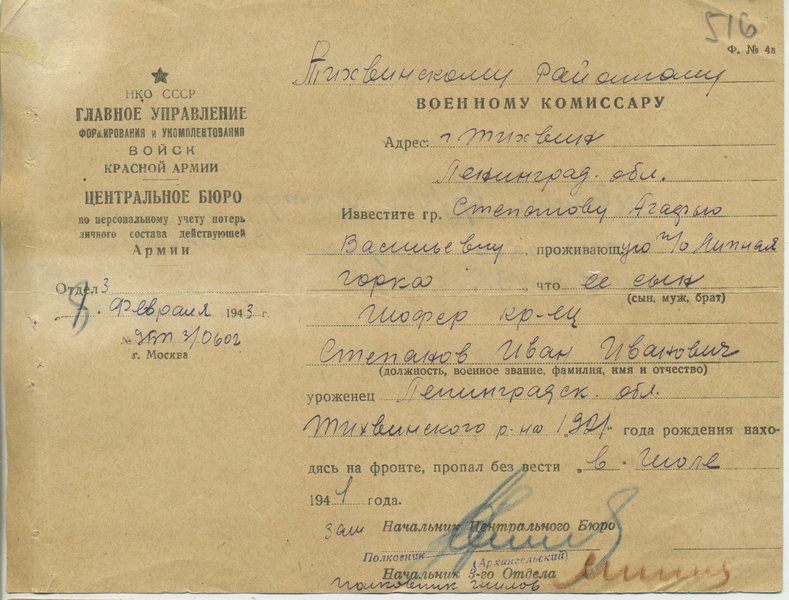 516
Ф. № 4в
НКО СССР
ГЛАВНОЕ УПРАВЛЕНИЕ
ФОРМИРОВАНИЯ и УКОМПЛЕКТОВАНИЯ
ВОЙСК
КРАСНОЙ АРМИИ
ЦЕНТРАЛЬНОЕ БЮРО
по персональному учету потерь
личного состава действующей
Армии
Отдел 3
8. Февраля 1943 г.
№
г. Москва
Тихвинскому районному
ВОЕННОМУ КОМИССАРУ
Адрес: г Тихвин
Ленинград. обл.
Известите гр. Степанову Агафью
Васильевну, проживающую п/о Липная
горка, что ее сын
(сын, муж, брат)
Шофер кр-ец
Степанов Иван Иванович
(должность, военное звание, фамилия, имя и отчество)
уроженец Ленинградск. обл.
Тихвинского р-на 1921 года рождения нахо-
дясь на фронте, пропал без вести „в
1941 года.
зам Начальник Центрального Бюро
Полковник (Архангельский)
Начальник 3-го Отдела
полковник